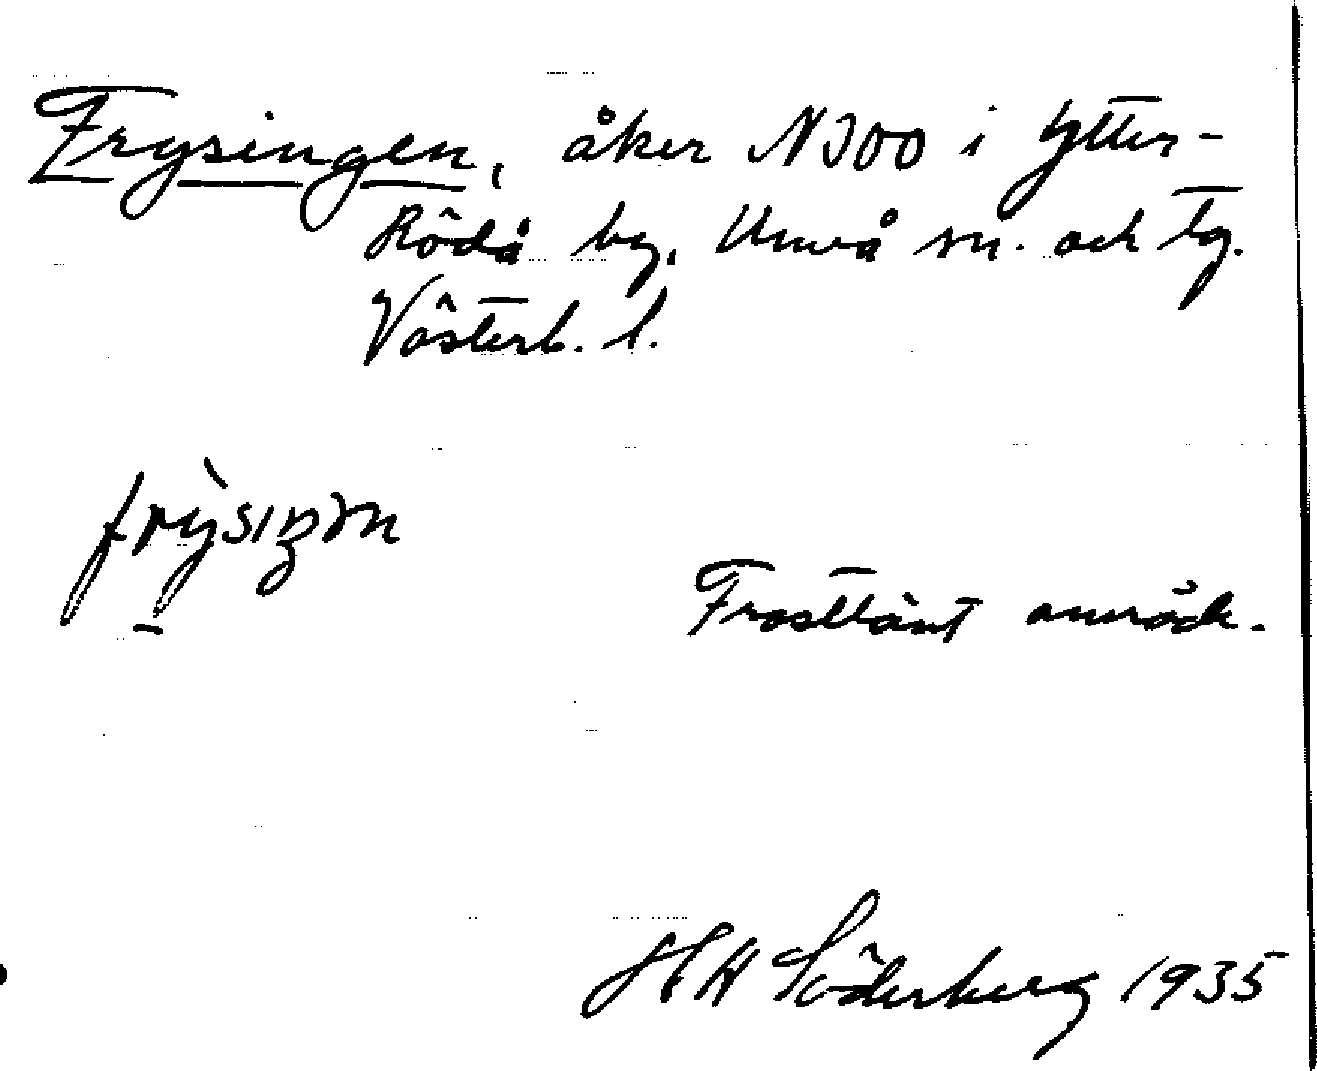 Frysingen, åker N300 i Ytter-
Rödå by, Umeå sn. och tg.
Västerb. l.
frỳsıŋən
Frostlänt område.
HH Söderberg 1935